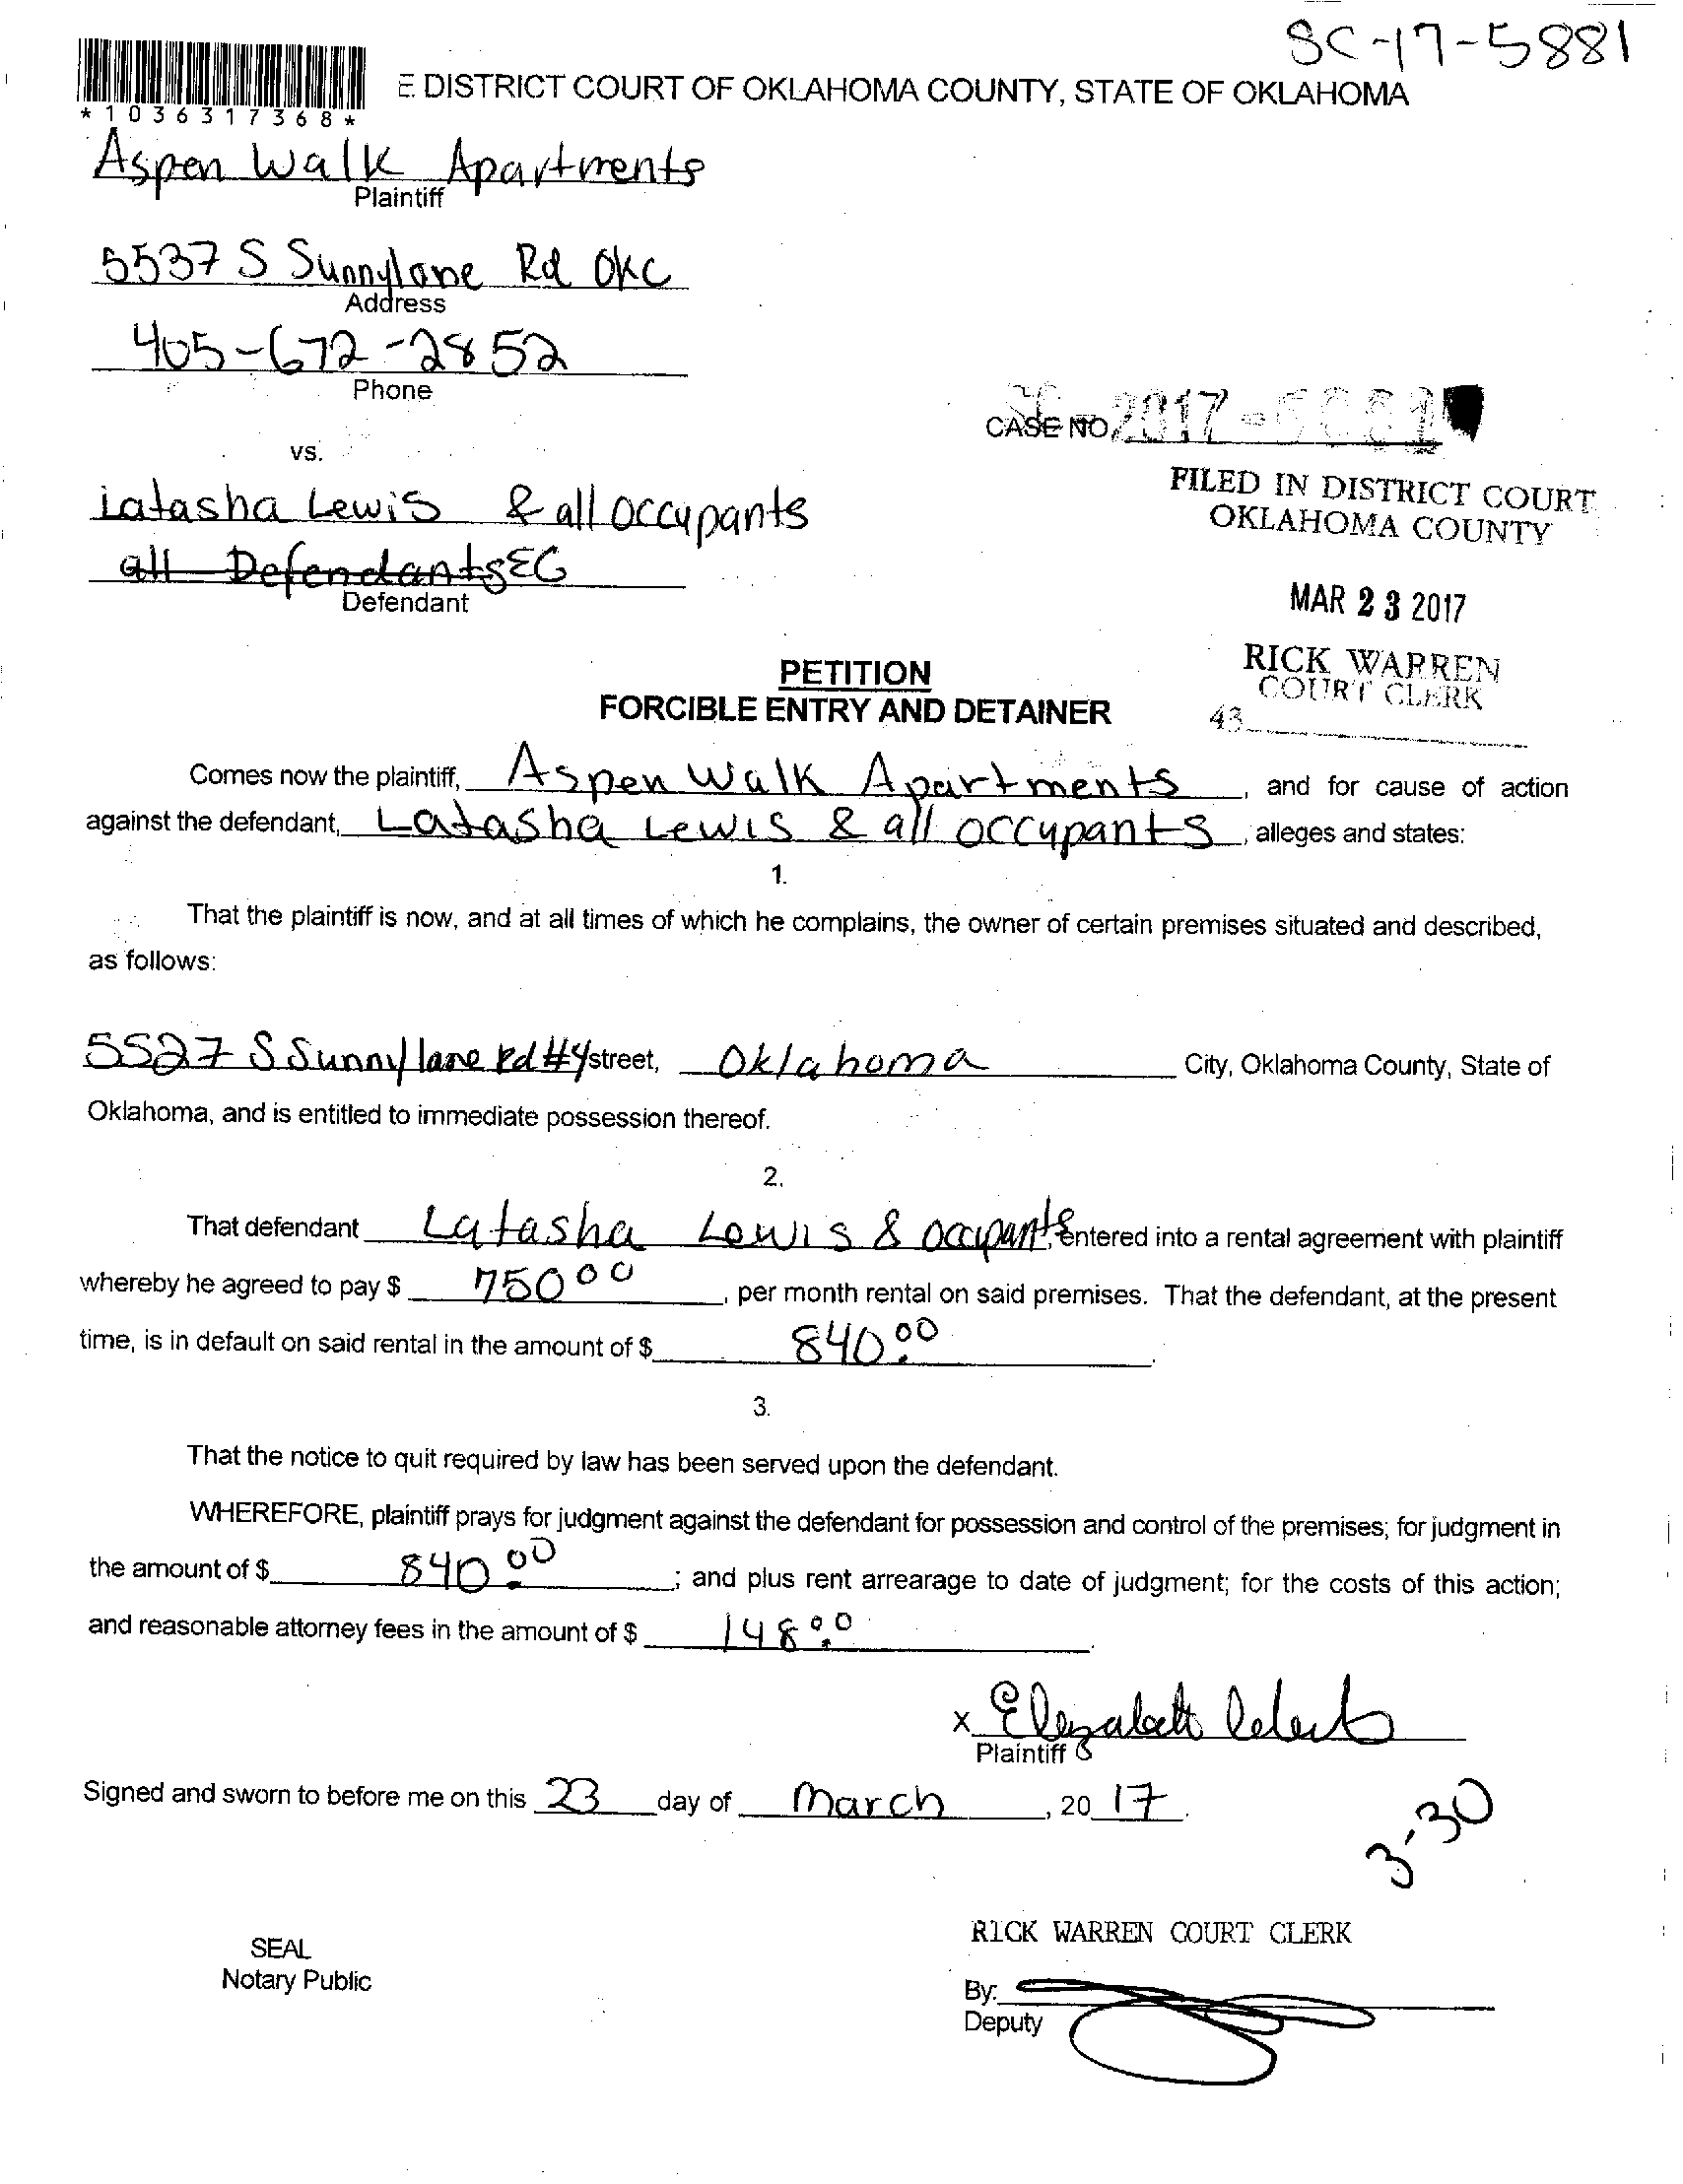 SC-17-5881
E DISTRICT COURT OF OKLAHOMA COUNTY, STATE OF OKLAHOMA
*1036317368*
Aspen Walk Apartments
Plaintiff
5537 S Sunnylane Rd OKC
Address
405-672-2852
Phone
CASE NO. SC-2017-5881
vs.
FILED IN DISTRICT COURT
OKLAHOMA COUNTY
Latasha Lewis & all occupants
all Defendants EG
Defendant
MAR 23 2017
RICK WARREN
COURT CLERK
43
PETITION
FORCIBLE ENTRY AND DETAINER
Comes now the plaintiff, Aspen Walk Apartments, and for cause of action
against the defendant, Latasha Lewis & all occupants, alleges and states:
1.
That the plaintiff is now, and at all times of which he complains, the owner of certain premises situated and described,
as follows:
5527 S Sunnylane Rd #4 street, Oklahoma City, Oklahoma County, State of
Oklahoma, and is entitled to immediate possession thereof.
2.
That defendant Latasha Lewis & occupants, entered into a rental agreement with plaintiff
whereby he agreed to pay $ 750 00, per month rental on said premises. That the defendant, at the present
time, is in default on said rental in the amount of $ 840.00.
3.
That the notice to quit required by law has been served upon the defendant.
WHEREFORE, plaintiff prays for judgment against the defendant for possession and control of the premises; for judgment in
the amount of $ 840.00; and plus rent arrearage to date of judgment; for the costs of this action;
and reasonable attorney fees in the amount of $ 148.00.
x Elizabeth
Plaintiff
Signed and sworn to before me on this 23 day of March, 20 17.
3-30
RICK WARREN COURT CLERK
SEAL
Notary Public
By:
Deputy